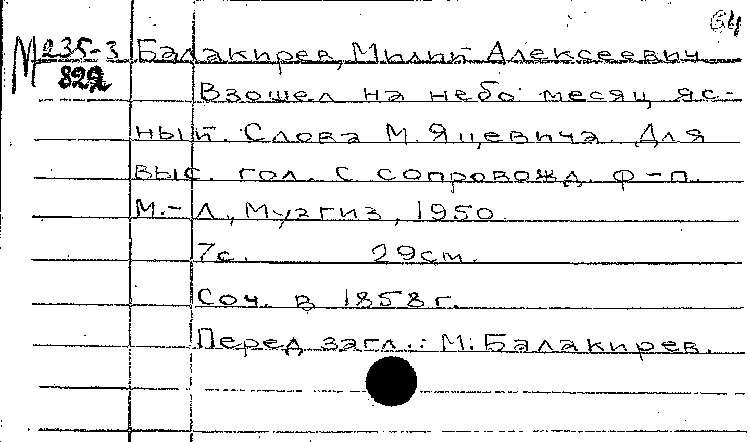 64
М 235-3 Балакирев, Милий Алексеевич
822 Взошел на небо месяц яс-
ный. Слова М. Яцевича. Для
выс. гол. с сопровожд. ф-п.
М.-Л., Музгиз, 1950
7с. 29см.
Соч. в 1858г.
Перед загл.: М. Балакирев.